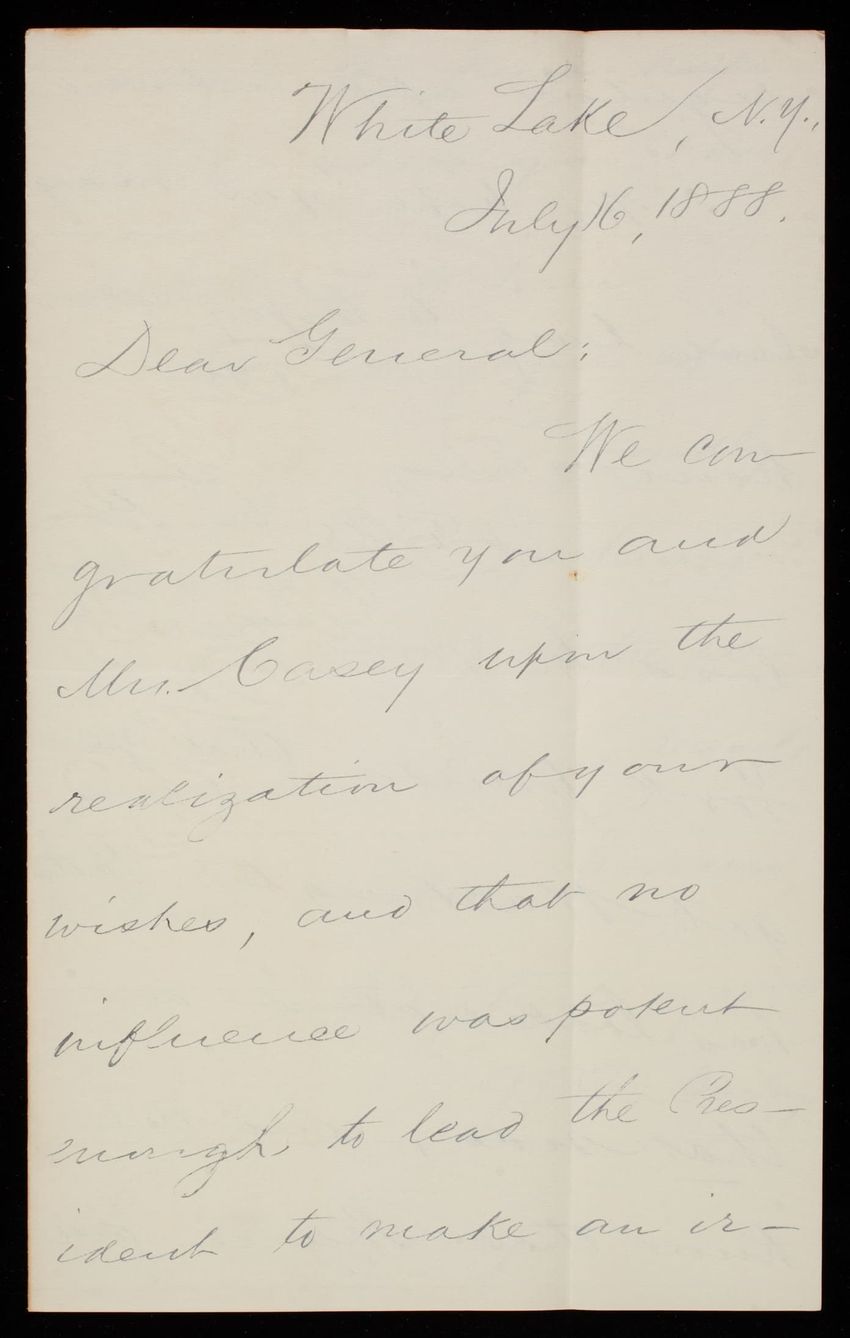 White Lake, N.Y.,
July 16, 1888.
Dear General:
We con-
gratulate you and
Mrs. Casey upon the
realization of your
wishes, and that no
influence was potent
enough to lead the Pres-
ident to make an ir-